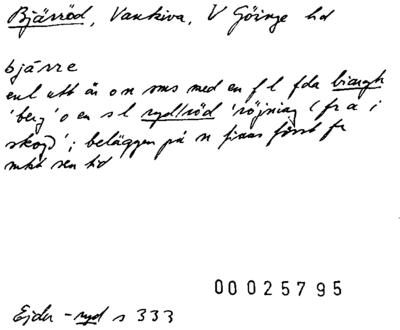 Bjärröd, Vankiva, V Göinge hd
bjärre
enl utt är on sms med en f l fda biærgh
'berg' o en s l ryd/röd 'röjning (fr a i
skog)'; beläggen på n finns först fr
mkt sen tid
00025795
Ejder -ryd s 333